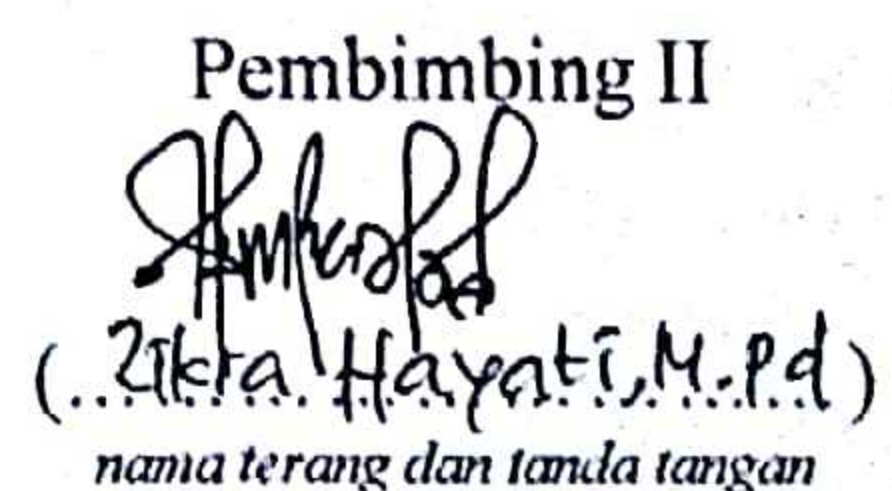 Pembimbing II
(..Zikra Hayati, M.Pd..)
nama terang dan tanda tangan